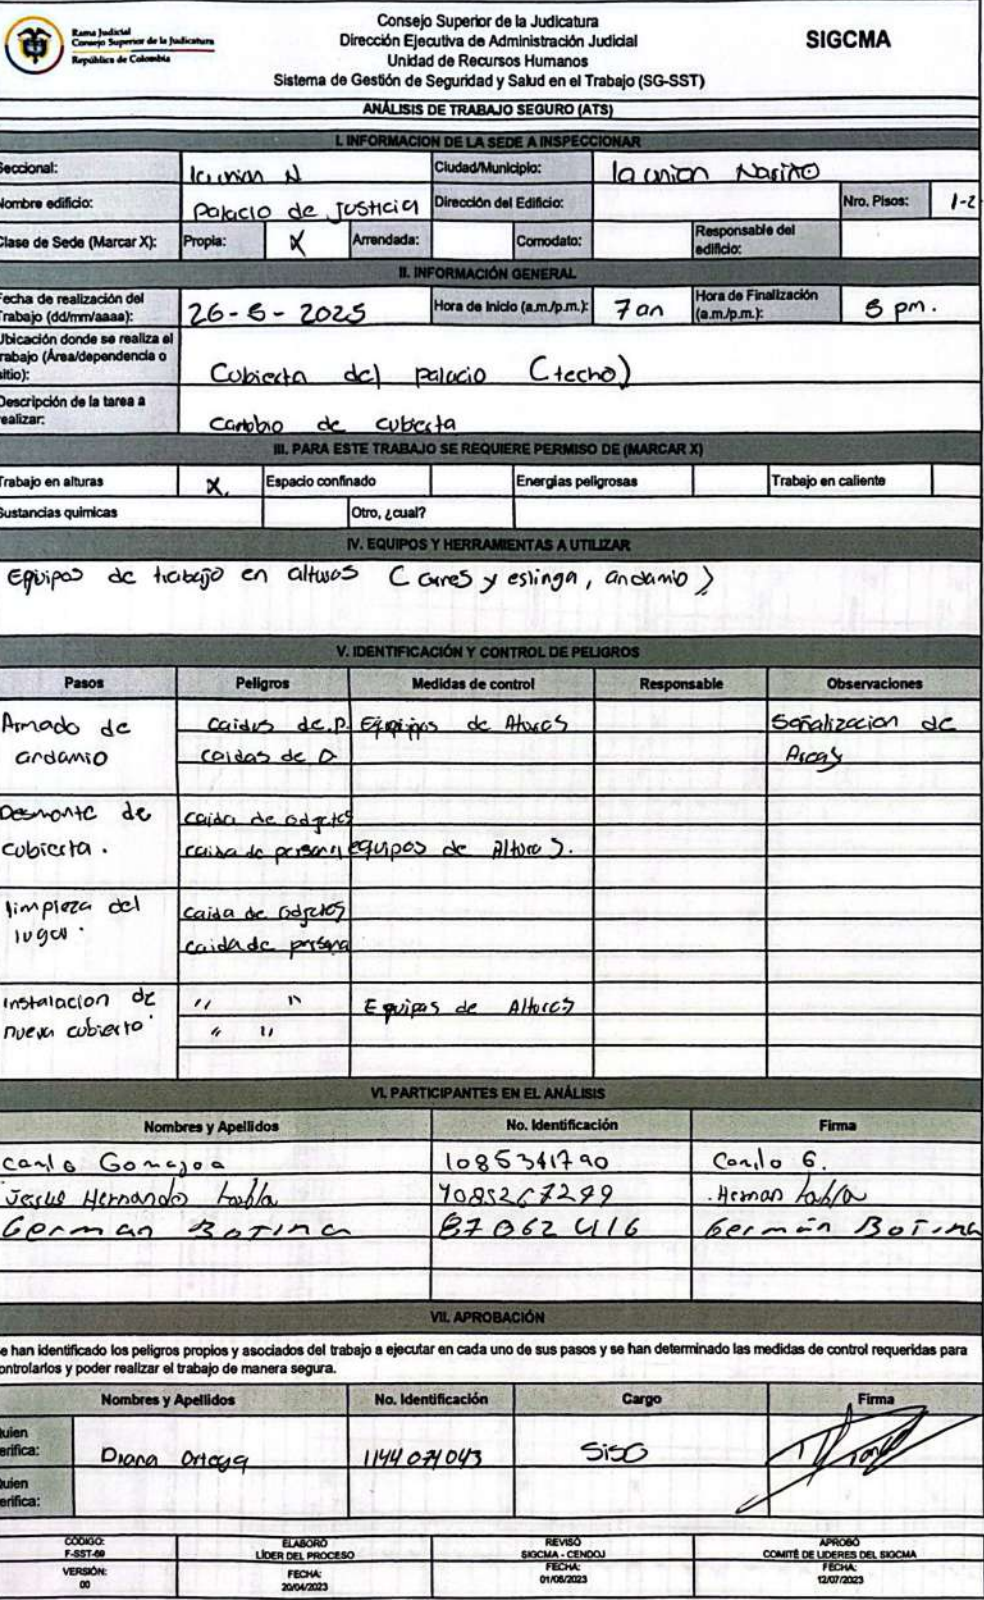 Rama Judicial
Consejo Superior de la Judicatura
República de Colombia
Consejo Superior de la Judicatura
Dirección Ejecutiva de Administración Judicial
Unidad de Recursos Humanos
Sistema de Gestión de Seguridad y Salud en el Trabajo (SG-SST)
SIGCMA
ANÁLISIS DE TRABAJO SEGURO (ATS)
I. INFORMACION DE LA SEDE A INSPECCIONAR
Seccional: la union N Ciudad/Municipio: la union Nariño
Nombre edificio: Palacio de Justicia Dirección del Edificio: Nro. Pisos: 1-2
Clase de Sede (Marcar X): Propia: X Arrendada: Comodato: Responsable del edificio:
II. INFORMACIÓN GENERAL
Fecha de realización del Trabajo (dd/mm/aaaa): 26-6-2025 Hora de Inicio (a.m./p.m.): 7 am Hora de Finalización (a.m./p.m.): 5 pm.
Ubicación donde se realiza el trabajo (Área/dependencia o sitio): Cubierta del palacio (techo)
Descripción de la tarea a realizar: Cambio de cubierta
III. PARA ESTE TRABAJO SE REQUIERE PERMISO DE (MARCAR X)
Trabajo en alturas X. Espacio confinado Energias peligrosas Trabajo en caliente
Sustancias quimicas Otro, ¿cual?
IV. EQUIPOS Y HERRAMIENTAS A UTILIZAR
Equipos de trabajo en alturas (arnes y eslinga, andamio)
V. IDENTIFICACIÓN Y CONTROL DE PELIGROS
Pasos Peligros Medidas de control Responsable Observaciones
Armado de caidas de.P. Equipos de Alturas Señalizacion de
andamio caidas de O. Areas
Desmonte de caida de objetos
cubierta. caida de persona equipos de Alturas.
limpieza del caida de objetos
lugar. caida de persona
instalacion de " " Equipos de Alturas
nueva cubierta " "
VI. PARTICIPANTES EN EL ANÁLISIS
Nombres y Apellidos No. Identificación Firma
Camilo Gomajoa 1085341790 Camilo G.
Jesus Hernando 1085267299 Hernan
German Botina 87062416 Germán Botina
VII. APROBACIÓN
Se han identificado los peligros propios y asociados del trabajo a ejecutar en cada uno de sus pasos y se han determinado las medidas de control requeridas para
controlarlos y poder realizar el trabajo de manera segura.
Nombres y Apellidos No. Identificación Cargo Firma
Quien verifica: Diana Ortega 1144071043 SISO
Quien verifica:
CÓDIGO: F-SST-69 ELABORÓ LÍDER DEL PROCESO REVISÓ SIGCMA - CENDOJ APROBÓ COMITÉ DE LIDERES DEL SIGCMA
VERSIÓN: 00 FECHA: 20/04/2023 FECHA: 01/06/2023 FECHA: 12/07/2023